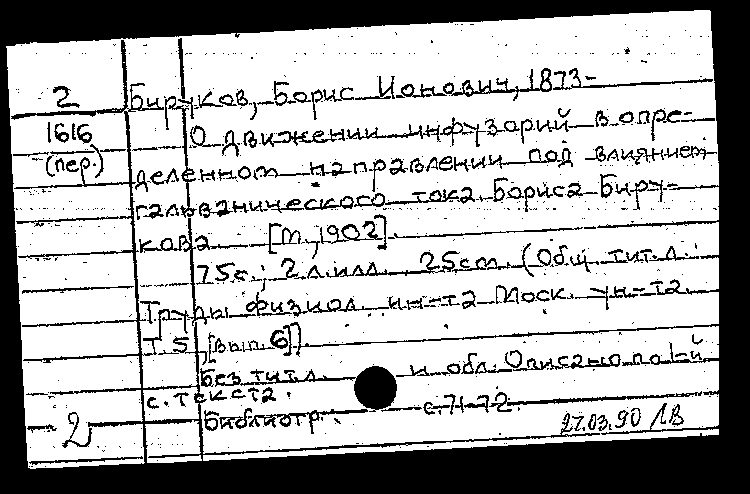 2
1616
(пер.)
Бируков, Борис Ионович, 1873-
О движении инфузорий в опре-
деленном направлении под влиянием
гальванического тока Бориса Биру-
кова [М., 1902].
75с.; 2 л. илл. 25см. (Общ. тит. л.:
Труды физиол. ин-та Моск. ун-та.
Т. 5, [вып. 6]).
Без тит. л. и обл. Описано по 1-й
с. текста.
Библиогр.: с. 71-72.
2
27.03.90 ЛВ